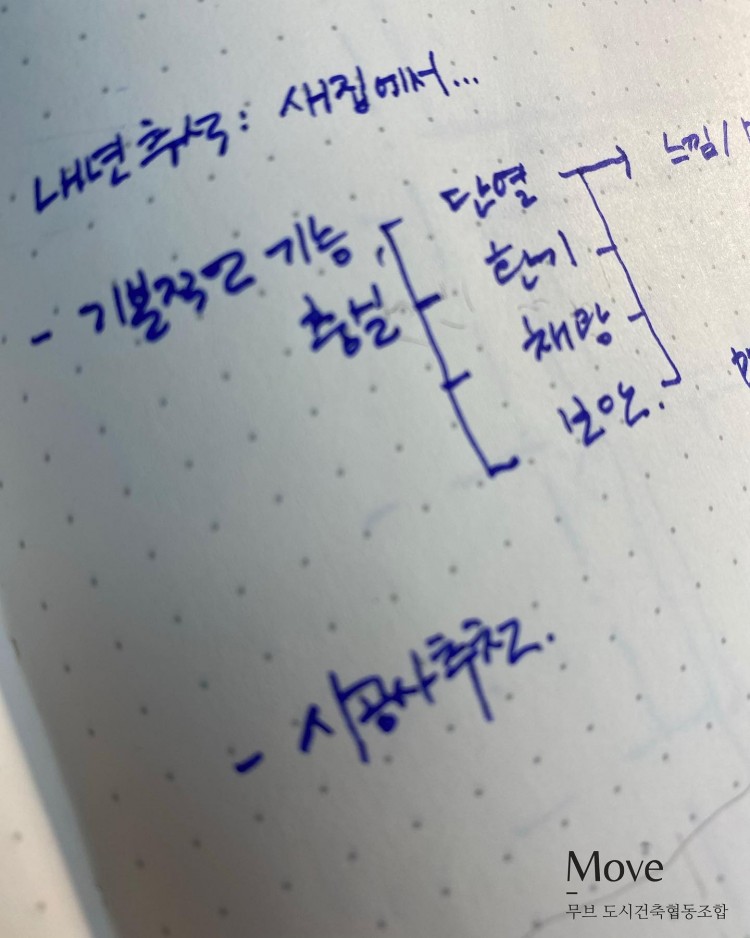 내년 추석: 새집에서...
- 기본적인 기능, 충실
단열
환기
채광
보안.
느낌/
- 시공사추천.
Move
무브 도시건축협동조합